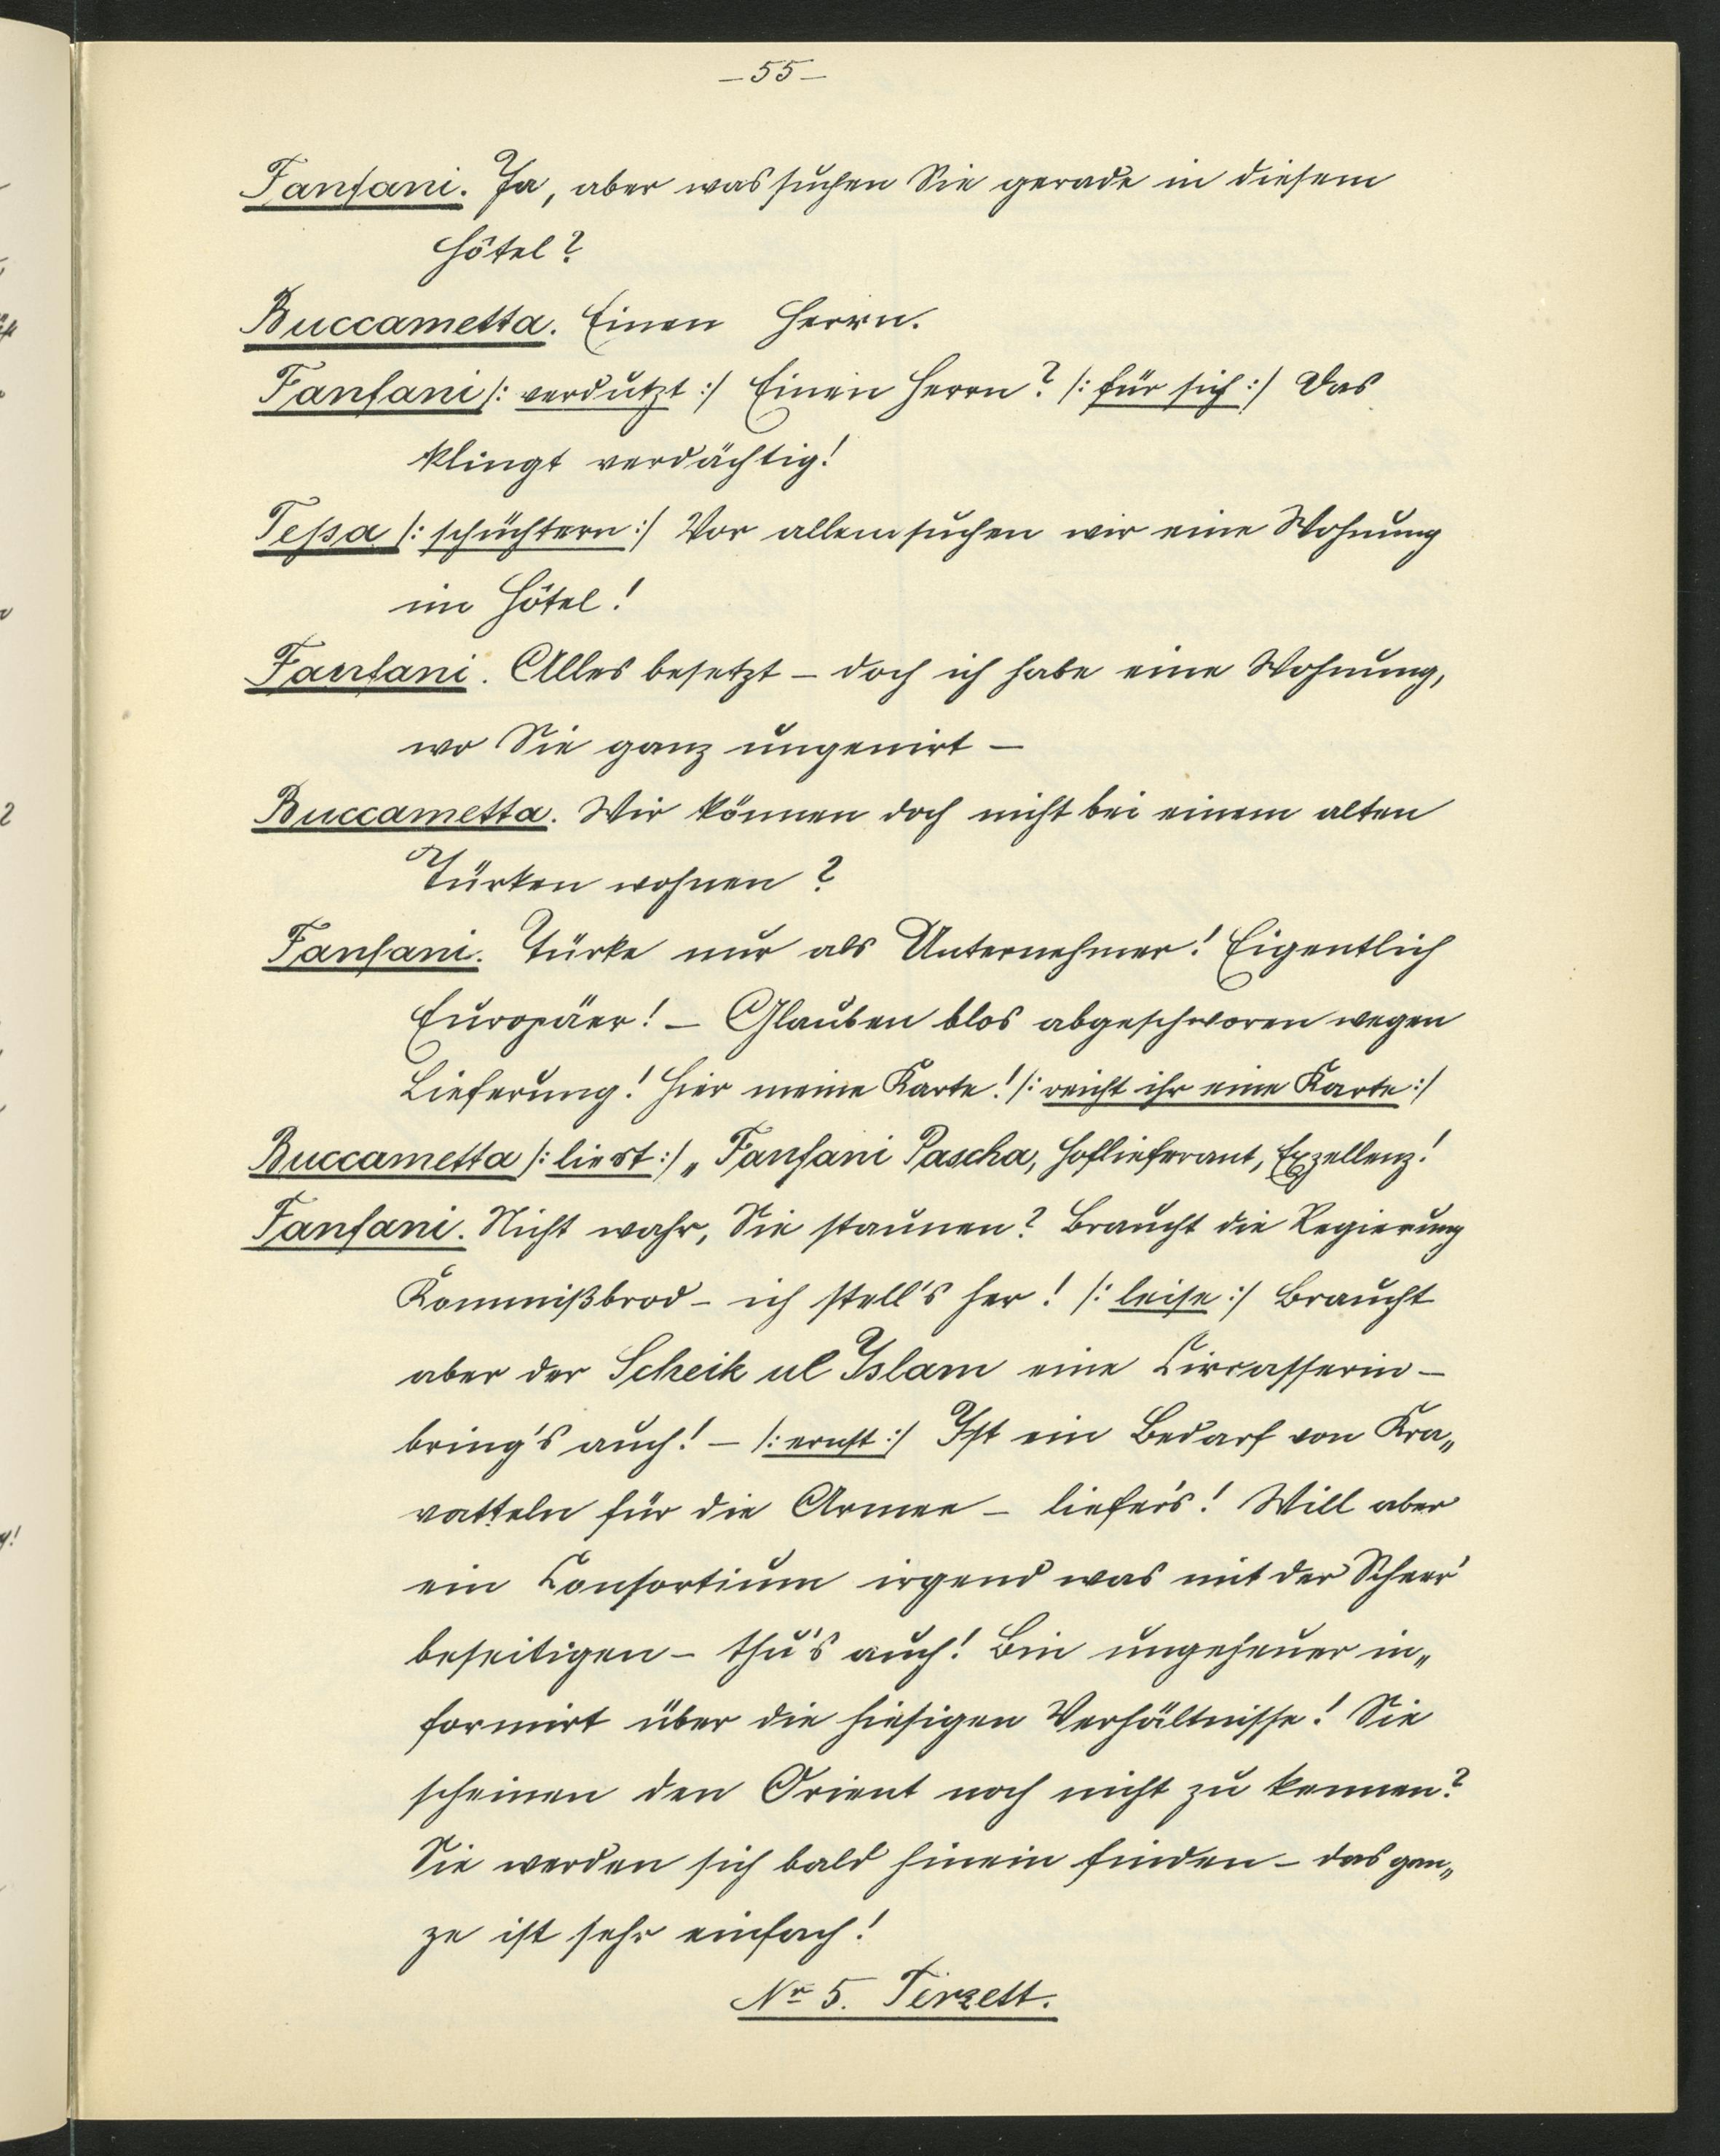 — 55 —
Fanfani. Ja, aber was suchen Sie gerade in diesem
Hôtel?
Buccametta. Einen Herrn.
Fanfani /: verdutzt :/ Einen Herrn? /: für sich :/ Das
klingt verdächtig!
Teßa /: schüchtern :/ Vor allem suchen wir eine Wohnung
im Hôtel!
Fanfani. Alles besetzt – doch ich habe eine Wohnung,
wo Sie ganz ungenirt –
Buccametta. Wir können doch nicht bei einem alten
Türken wohnen?
Fanfani. Türke nur als Unternehmer! Eigentlich
Europäer! – Glauben blos abgeschworen wegen
Lieferung! Hier meine Karte! /: reicht ihr eine Karte :/
Buccametta /: liest :/ „Fanfani Pascha, Hoflieferant, Exzellenz!
Fanfani. Nicht wahr, Sie staunen? Braucht die Regierung
Kommißbrod – ich stell's her! /: leise :/ Braucht
aber der Scheik ul Islam eine Circasserin –
bring's auch! – /: ernst :/ Ist ein Bedarf von Kra„
vatteln für die Armee – liefer's! Will aber
ein Consortium irgend was mit der Scheer'
beseitigen – thu's auch! Bin ungeheuer in„
formirt über die hiesigen Verhältnisse! Sie
scheinen den Orient noch nicht zu kennen?
Sie werden sich bald hinein finden – das gan„
ze ist sehr einfach!
Nr 5. Terzett.